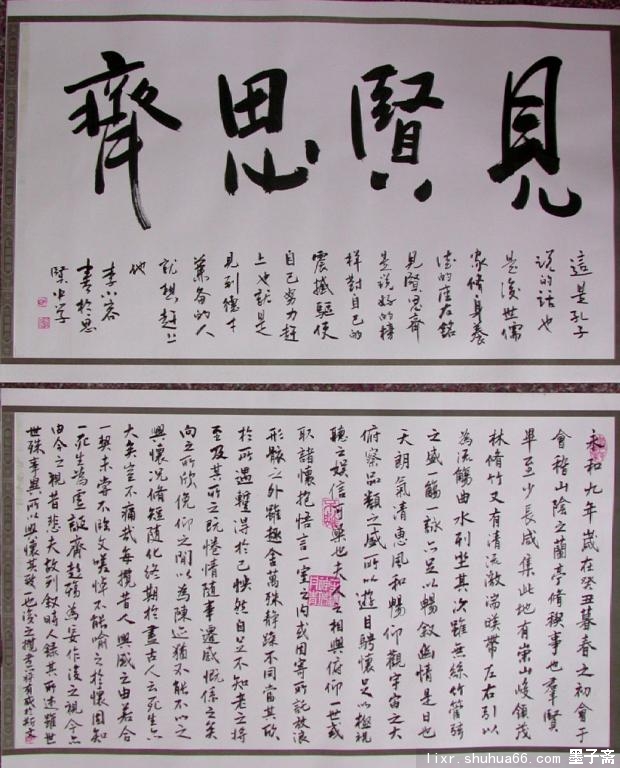 見賢思齊
這是孔子
說的話也
是後世儒
家修身養
德的座右銘
見賢思齊
是說好的榜
樣對自己的
震撼驅使
自己努力趕
上也就是
見到德才
兼备的人
就想趕上
也
李小容
書於思
賢中学
永和九年歲在癸丑暮春之初會于
會稽山陰之蘭亭脩稧事也羣賢
畢至少長咸集此地有崇山峻領茂
林脩竹又有清流激湍暎帶左右引以
為流觴曲水列坐其次雖無絲竹管弦
之盛觴一詠亦足以暢叙幽情是日也
天朗氣清惠風和暢仰觀宇宙之大
俯察品類之盛所以遊目騁懷足以極視
聽之娛信可樂也夫人之相與俯仰一世或
取諸懷抱悟言一室之內或因寄所託放浪
形骸之外雖趣舍萬殊靜躁不同當其欣
於所遇暫得於己怏然自足不知老之將
至及其所之既惓情随事遷感慨係之矣
向之所欣俛仰之間以為陳迹猶不能不以之
興懷況脩短随化終期於盡古人云死生亦
大矣豈不痛哉每攬昔人興感之由若合
一契未嘗不臨文嗟悼不能喻之於懷固知
一死生為虛誕齊彭殤為妄作後之視今亦
由今之視昔悲夫故列叙時人錄其所述雖世
世殊事異所以興懷其致一也後之攬者亦將有感於斯文
lixr.shuhua66.com 墨子斋